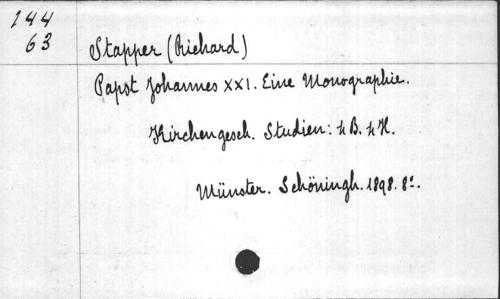 144
63
Stapper (Richard)
Papst Johannes XXI. Eine Monographie.
Kirchengesch. Studien: 4 B. 4 H.
Münster. Schöningh. 1898. 8º.